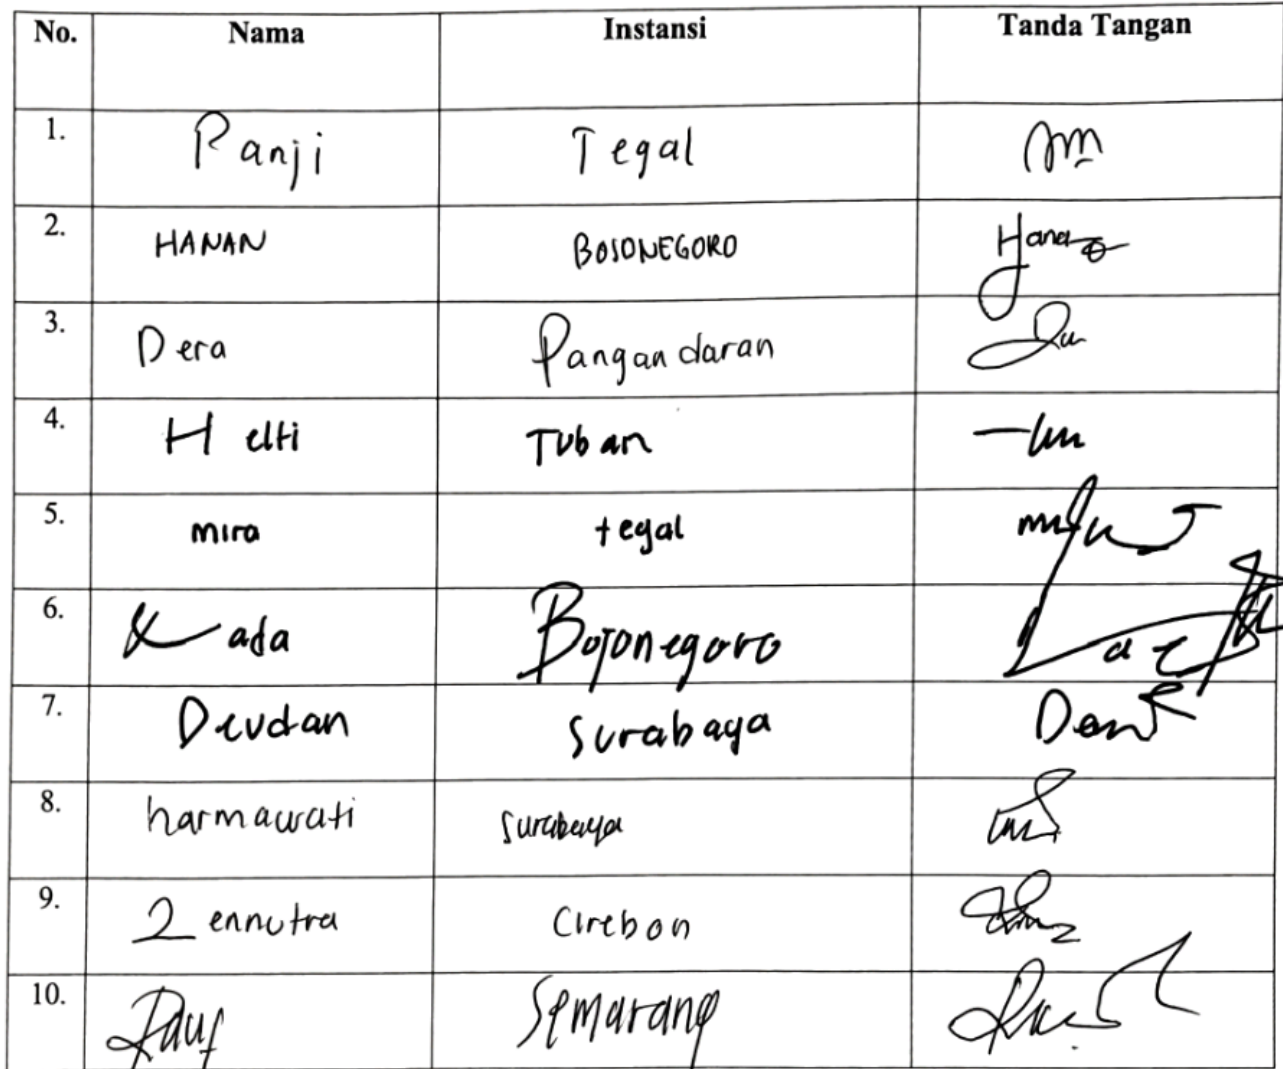 No. Nama Instansi Tanda Tangan
1. Panji Tegal
2. HANAN BOJONEGORO Hanan
3. Dera Pangandaran
4. Helti Tuban
5. mira tegal
6. Bojonegoro
7. Devdan Surabaya
8. harmawati Surabaya
9. Zennutra Cirebon
10. Rauf Semarang